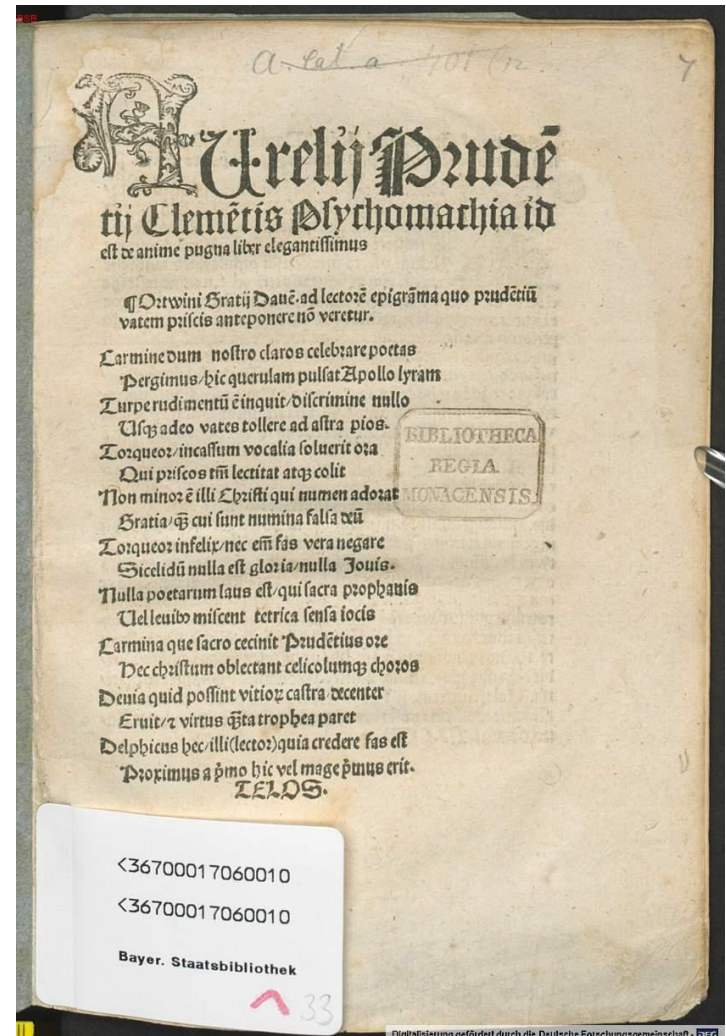 BSB
A. lat. a. 401 (12.
7
AUrelij Prudē
tij Clemētis Psychomachia id
est de anime pugna liber elegantissimus
¶ Ortwini Gratij Dauē. ad lectorē epigrāma quo prudētiū
vatem priscis anteponere nō veretur.
Carmine dum nostro claros celebrare poetas
Pergimus/hic querulam pulsat Apollo lyram
Turpe rudimentū ē inquit/discrimine nullo
Usqꝫ adeo vates tollere ad astra pios.
Torqueor/incassum vocalia soluerit ora
Qui priscos tm̄ lectitat atqꝫ colit
Non minor ē illi Christi qui numen adorat
Gratia/q̄ꝫ cui sunt numina falsa deū
Torqueor infelix/nec em̄ fas vera negare
Sicelidū nulla est gloria/nulla Jouis.
Nulla poetarum laus est/qui sacra prophanis
Uel leuibꝰ miscent tetrica sensa iocis
Carmina que sacro cecinit Prudētius ore
Hec christum oblectant celicolumqꝫ choros
Deuia quid possint vitioꝝ castra decenter
Eruit/⁊ virtus q̄ꝫta trophea paret
Delphicus hec/illi(lector)quia credere fas est
Proximus a p̄mo hic vel mage p̄mus erit.
TELOS.
BIBLIOTHECA
REGIA
MONACENSIS.
<36700017060010
<36700017060010
Bayer. Staatsbibliothek
33
Digitalisierung gefördert durch die Deutsche Forschungsgemeinschaft - DFG